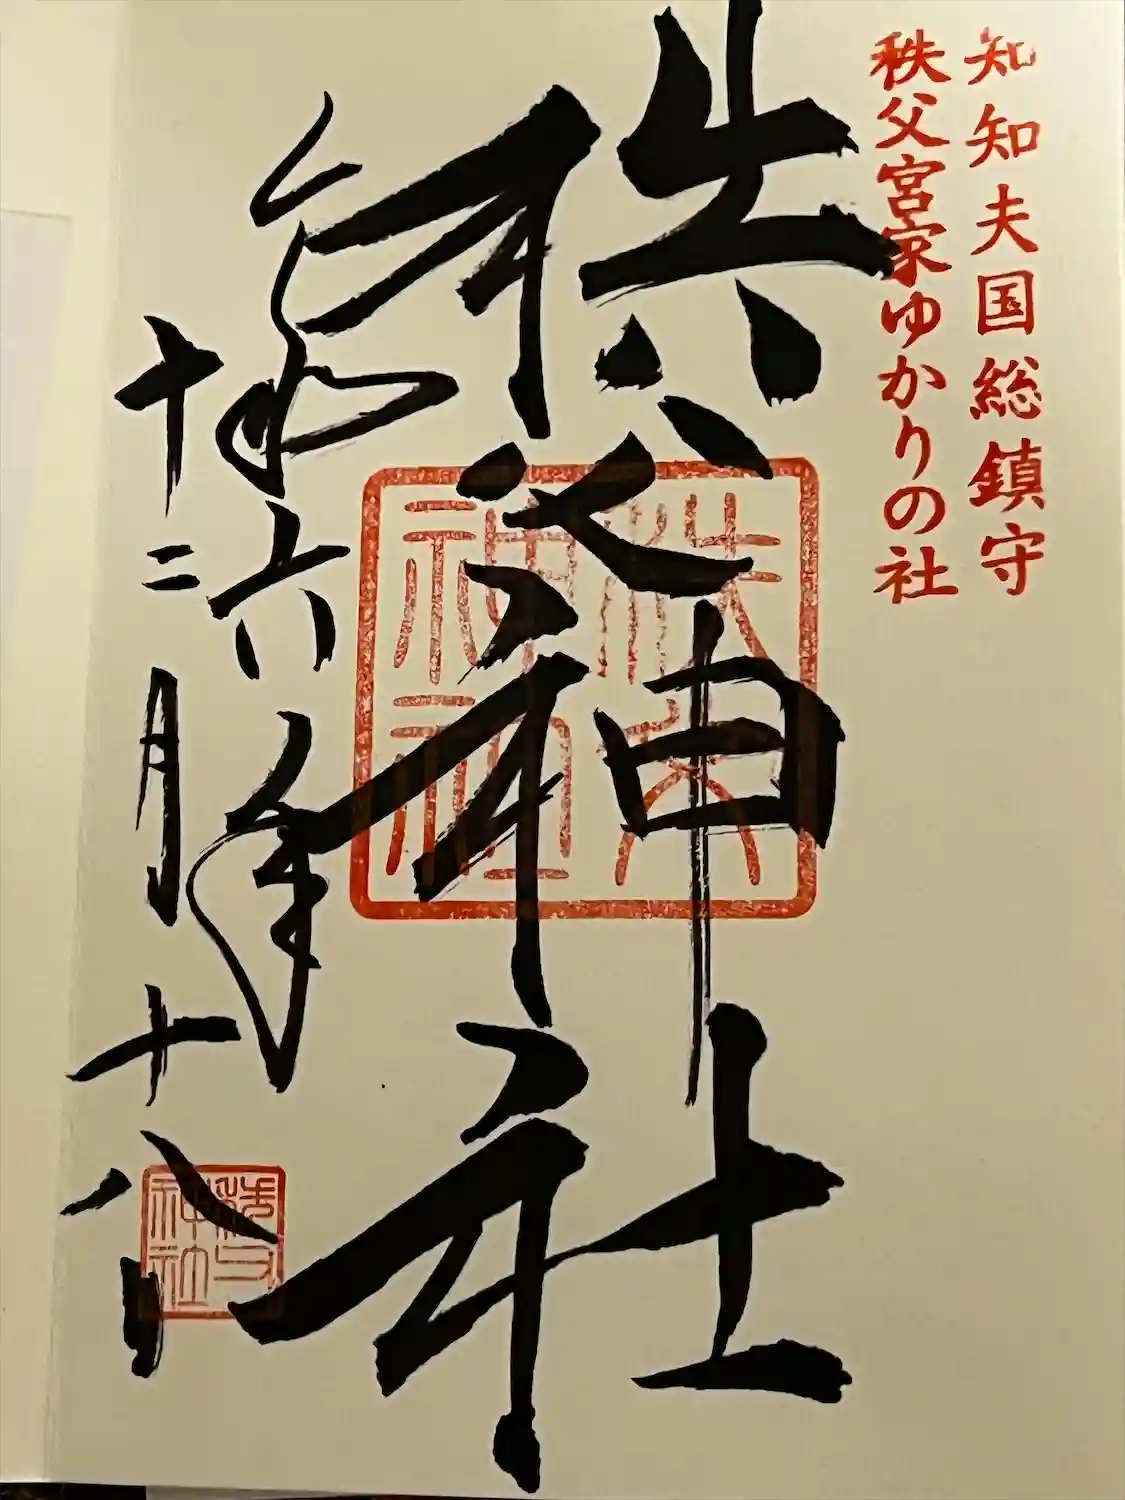 知知夫国総鎮守
秩父宮家ゆかりの社
秩父神社
秩父神社
令和六年
十二月十八日
秩父神社